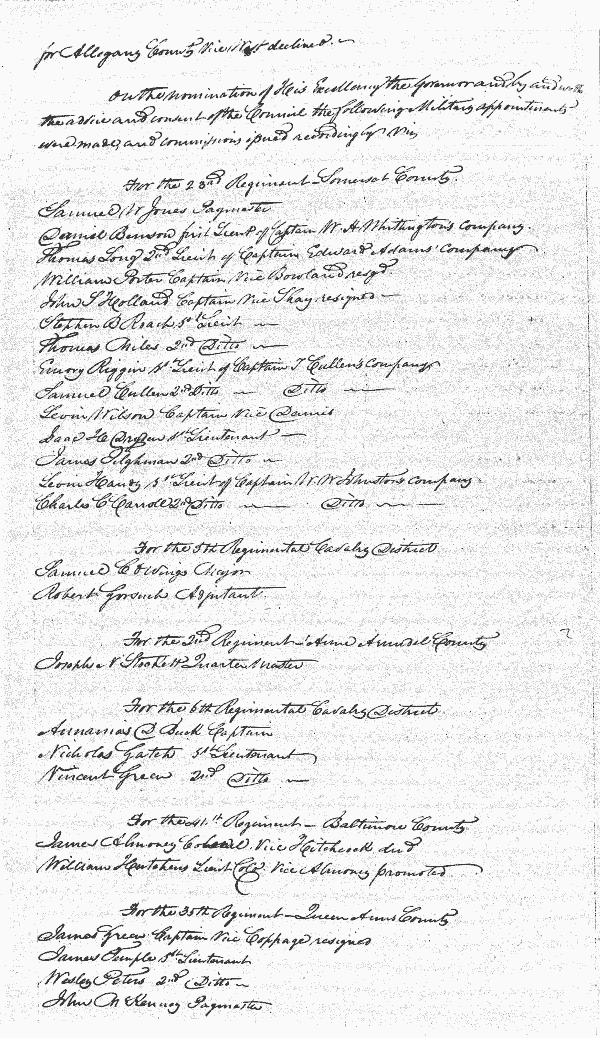 for Allegany County Vice West declined.
On the nomination of His Excellency the Governor and by and with
the advice and consent of the Council the following Military appointments
were made, and commissions issued accordingly Viz
For the 23rd Regiment - Somerset County.
Samuel W Jones Paymaster
Daniel Benson first Lieut of Captain W. H. Whittington's company.
Thomas Long 2nd Lieut of Captain Edward Adams' company
William Porter Captain Vice Bowland resgd.
John S Holland Captain Vice Shay resigned
Stephen B Roach 1st Lieut
Thomas Miles 2nd Ditto
Emory Riggin 1st Lieut of Captain T Cullen's company
Samuel Cullen 2nd Ditto Ditto
Levin Wilson Captain Vice Dames
Isaac H Dryden 1st Lieutenant
James Tilghman 2nd Ditto
Levin Handy 1st Lieut of Captain W. W Johnston's company
Charles C Carroll 2nd Ditto Ditto
For the 5th Regimental Cavalry District
Samuel C Owings Major
Robert Gorsuch Adjutant
For the 2nd Regiment - Anne Arundel County
Joseph N Stockett Quarter Master
For the 6th Regimental Cavalry District.
Annanias D Buck Captain
Nicholas Gatch 1st Lieutenant
Vincent Green 2nd Ditto
For the 41st Regiment - Baltimore County
James Almoney Colonel Vice Hitchcock decd
William Hutchens Lieut Col. Vice Almoney promoted
For the 35th Regiment - Queen Anns County
James Green Captain Vice Coppage resigned
James Temple 1st Lieutenant
Wesley Peters 2nd Ditto
John M Kenney Paymaster